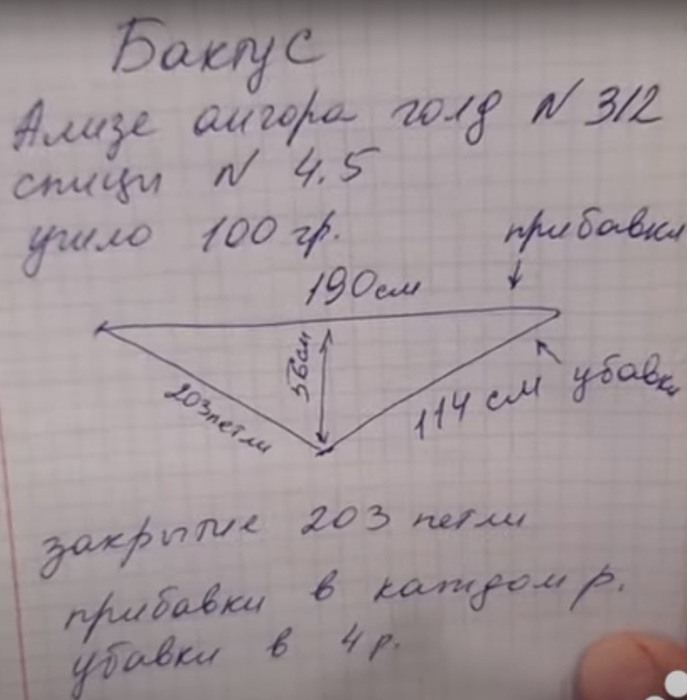 Бактус
Ализе ангора голд N 312
спицы N 4.5
ушло 100 гр.
прибавки
190 см
56 см
203 петли
114 см
убавки
закрытие 203 петли
прибавки в каждом р.
убавки в 4 р.